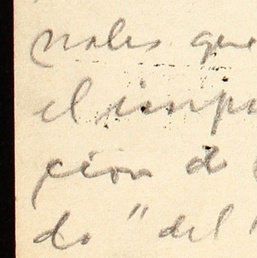 nales que
el impo
ción d
do " del "